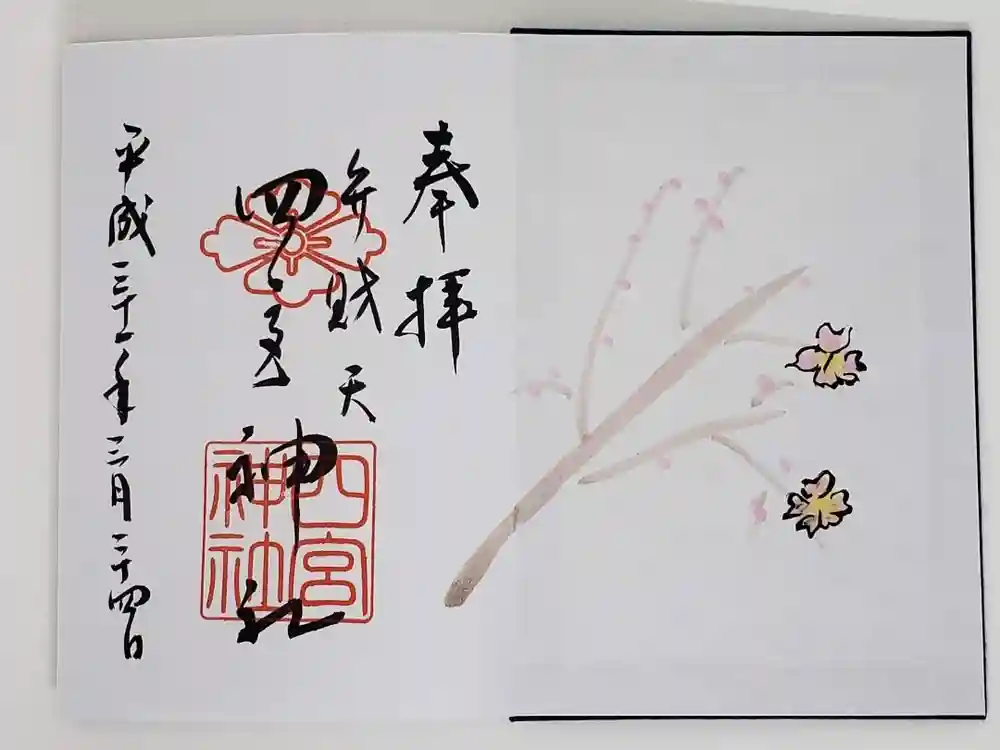 奉拝
弁財天
四之宮神社
四宮神社
平成三十一年三月二十四日